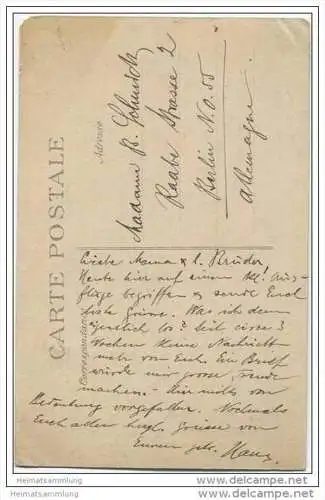 CARTE POSTALE
Correspondance
Adresse
Madame B. Schmidt
Raabe Strasse 2
Berlin N.O. 55
Allemagne.
Liebe Mama & l. Brüder
Heute hier auf einem kl. Aus-
fluge begriffen & sende Euch
beste Grüsse. Was ist denn
eigentlich los? Seit circa 3
Wochen keine Nachricht
mehr von Euch. Ein Brief
würde mir grosse Freude
machen. Hier nichts von
Bedeutung vorgefallen. Nochmals
Euch allen herzl. Grüsse von
Eurem gel. Hans.
Heimatsammlung
www.heimatsammlung.de